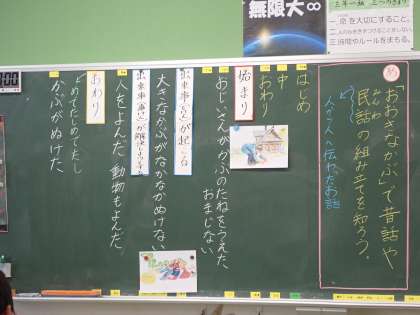 無限大∞
三年一組 三つのきまり
一.命を大切にすること。
二.人の心をきずつけることをしない。
三.時間やルールをまもる。
あ
「おおきなかぶ」で昔話や
みんわ
民話の組み立てを知ろう。
人から人へ伝わったお話
はじめ
中
おわり
始まり
おじいさんがかぶのたねをうえた。
おまじない
出来事(事けん)が起こる
大きなかぶがなかなかぬけない
出来事(事けん)が解決する
人をよんだ 動物もよんだ
おわり
めでたしめでたし
かぶがぬけた